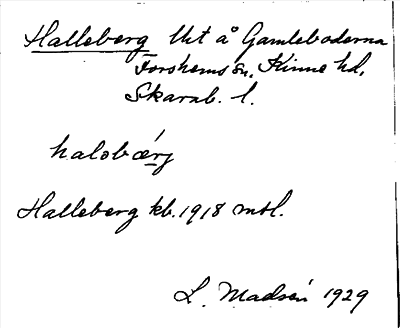 Halleberg Uvt å Gamleboderna
Forshems sn, Kinne hd,
Skarab. l.
halobærj
Halleberg kb. 1918 mtl.
L. Madsén 1929